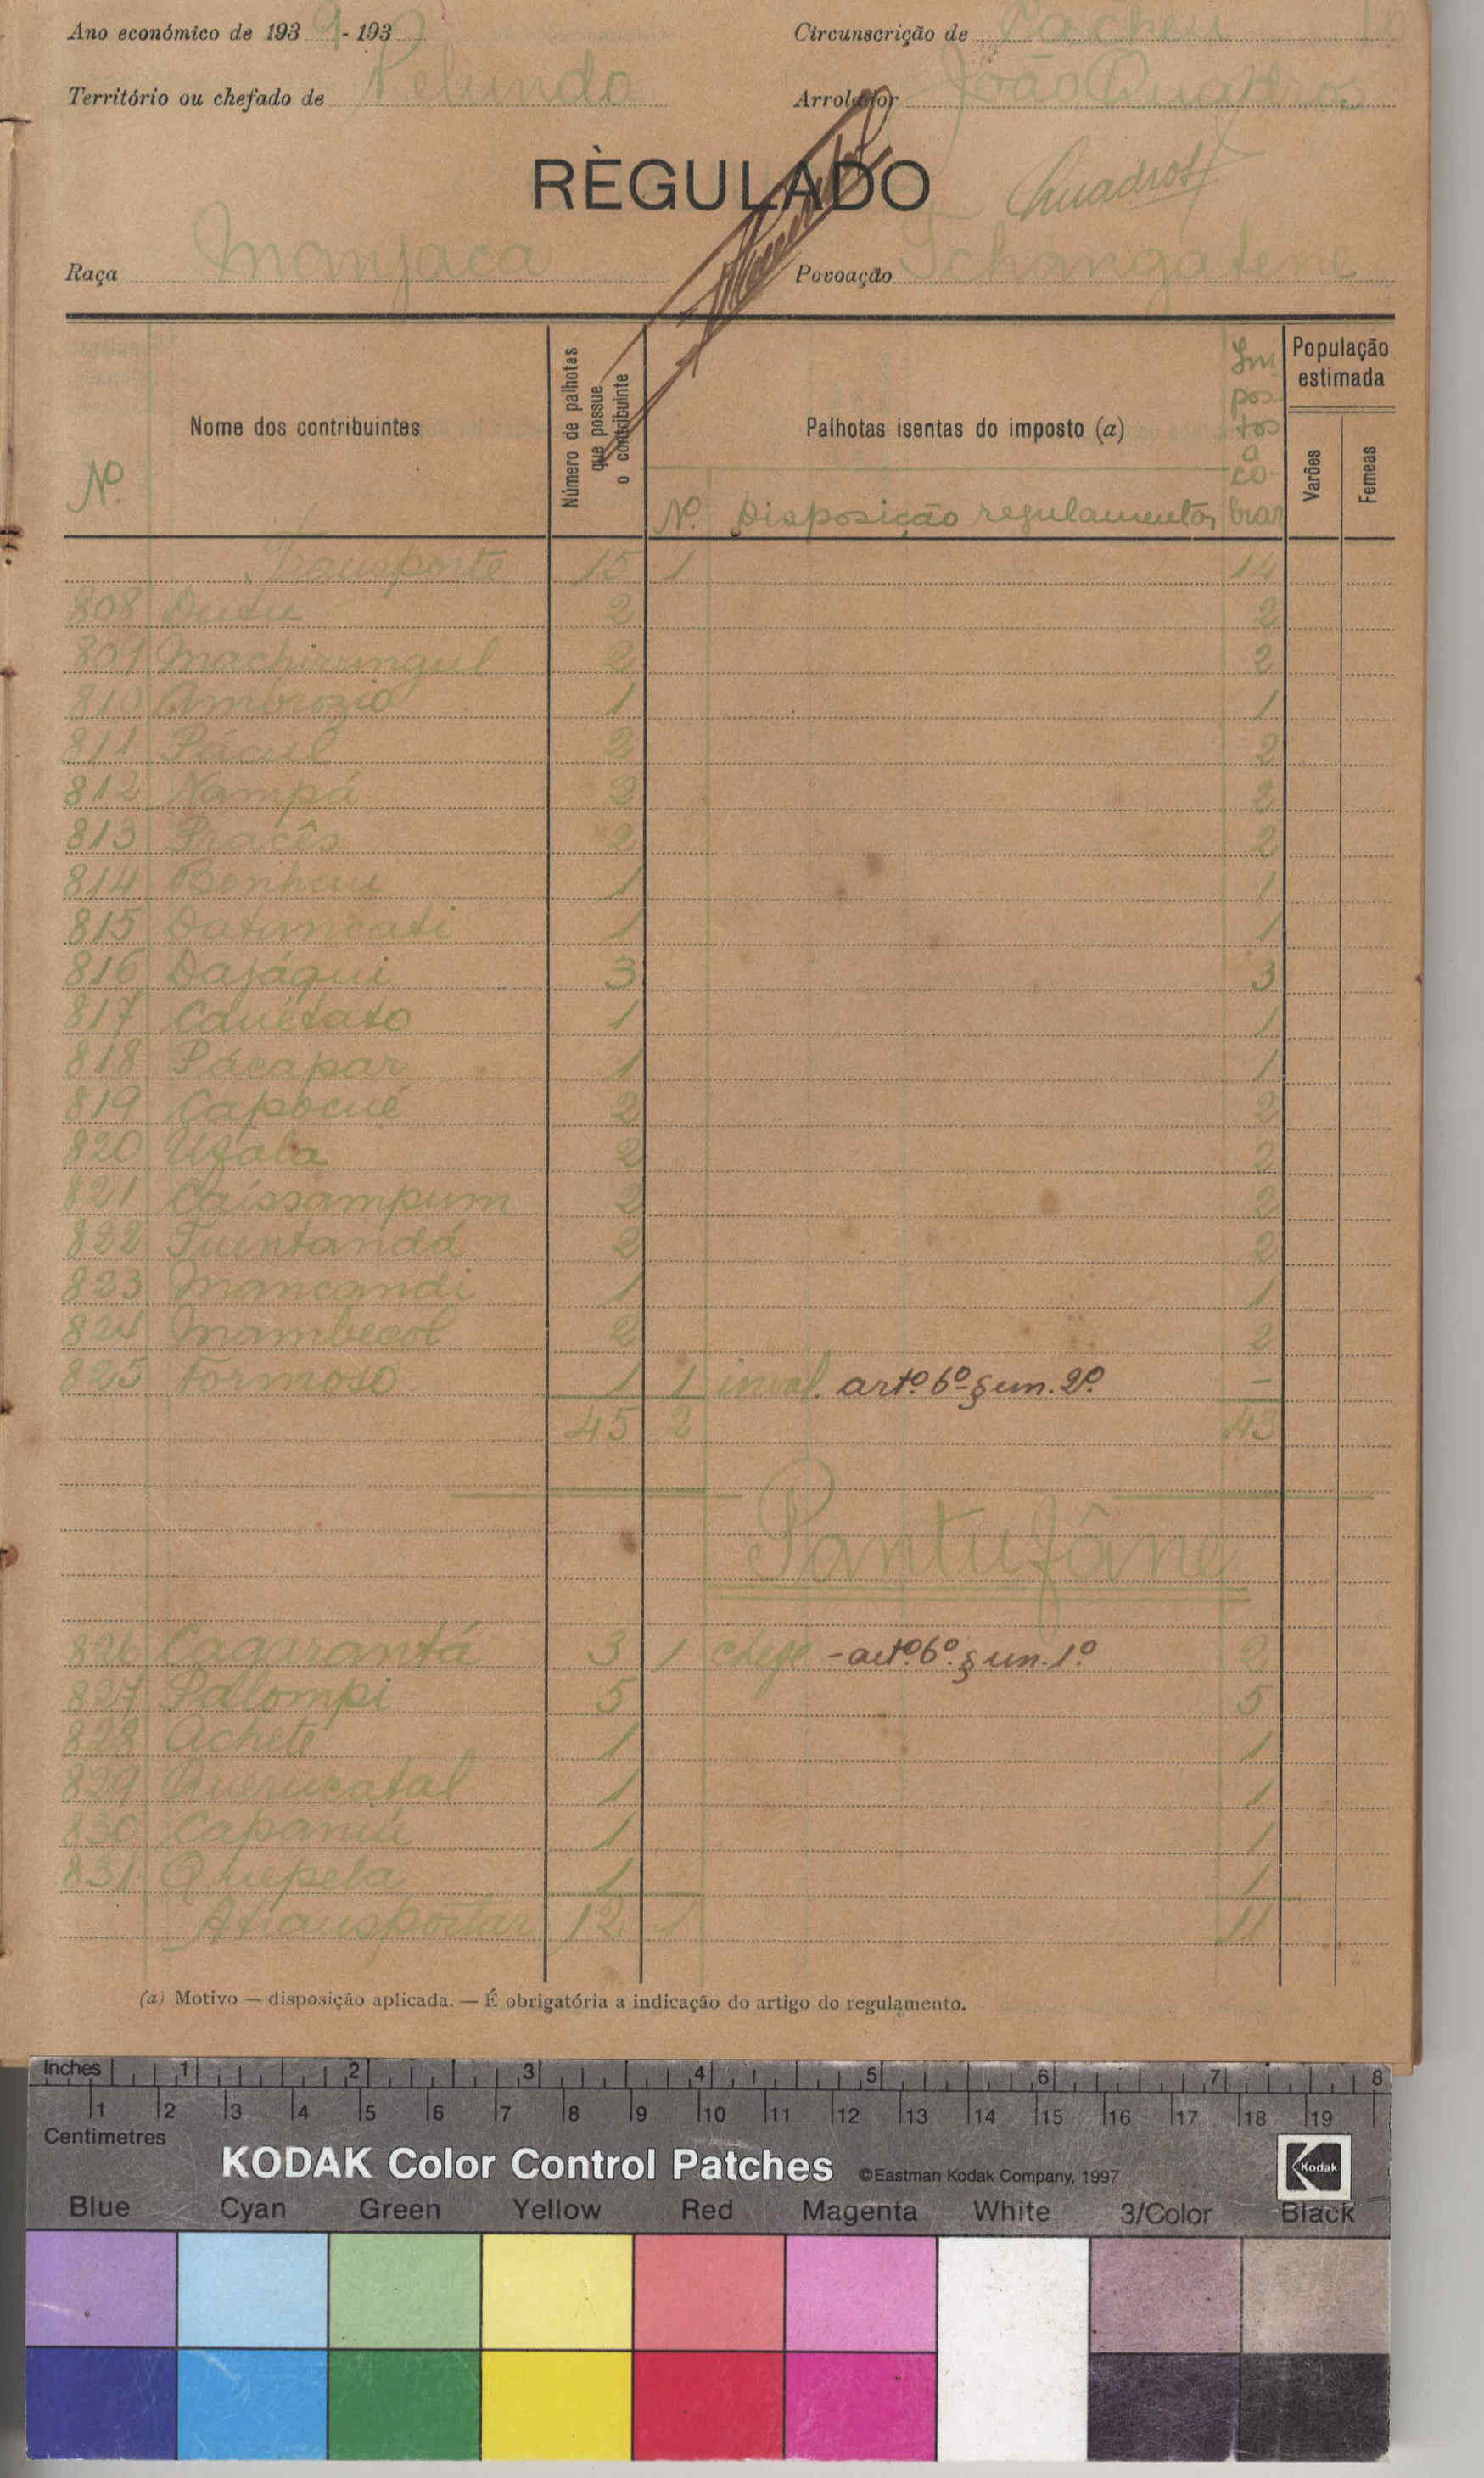 Ano económico de 1939-193
Circunscrição de Cacheu
Território ou chefado de Pelundo
Arrolador João Quadros
RÈGULADO
Quadros
Raça Manjaca
Povoação Tchangatene
Nº
Nome dos contribuintes
Número de palhotas que possue o contribuinte
Palhotas isentas do imposto (a)
Nº Disposição regulamentos
Impostos a cobrar
População estimada
Varões
Femeas
Transporte 15 1 14
808 Dutu 2 2
809 Machirungul 2 2
810 Ambrozio 1 1
811 Pácul 2 2
812 Nampá 2 2
813 2 2
814 Benhau 1 1
815 Datuncati 1 1
816 Dajáqui 3 3
817 Cauétato 1 1
818 Pácapar 1 1
819 Capocué 2 2
820 Ufala 2 2
821 Caissampum 2 2
822 Tuentandá 2 2
823 Mancandi 1 1
824 Mambecol 2 2
825 Formoso 1 1 inval. artº. 6º-§ un. 2º. -
45 2 43
Pantufâne
826 Cagarantá 3 1 chefe - artº. 6º. § un. 1º 2
827 Palompi 5 5
828 Achete 1 1
829 Querucatal 1 1
830 1 1
831 Quepela 1 1
A transportar 12 1 11
(a) Motivo — disposição aplicada. — É obrigatória a indicação do artigo do regulamento.
Inches 1 2 3 4 5 6 7 8
1 2 3 4 5 6 7 8 9 10 11 12 13 14 15 16 17 18 19
Centimetres
KODAK Color Control Patches ©Eastman Kodak Company, 1997 Kodak
Blue Cyan Green Yellow Red Magenta White 3/Color Black